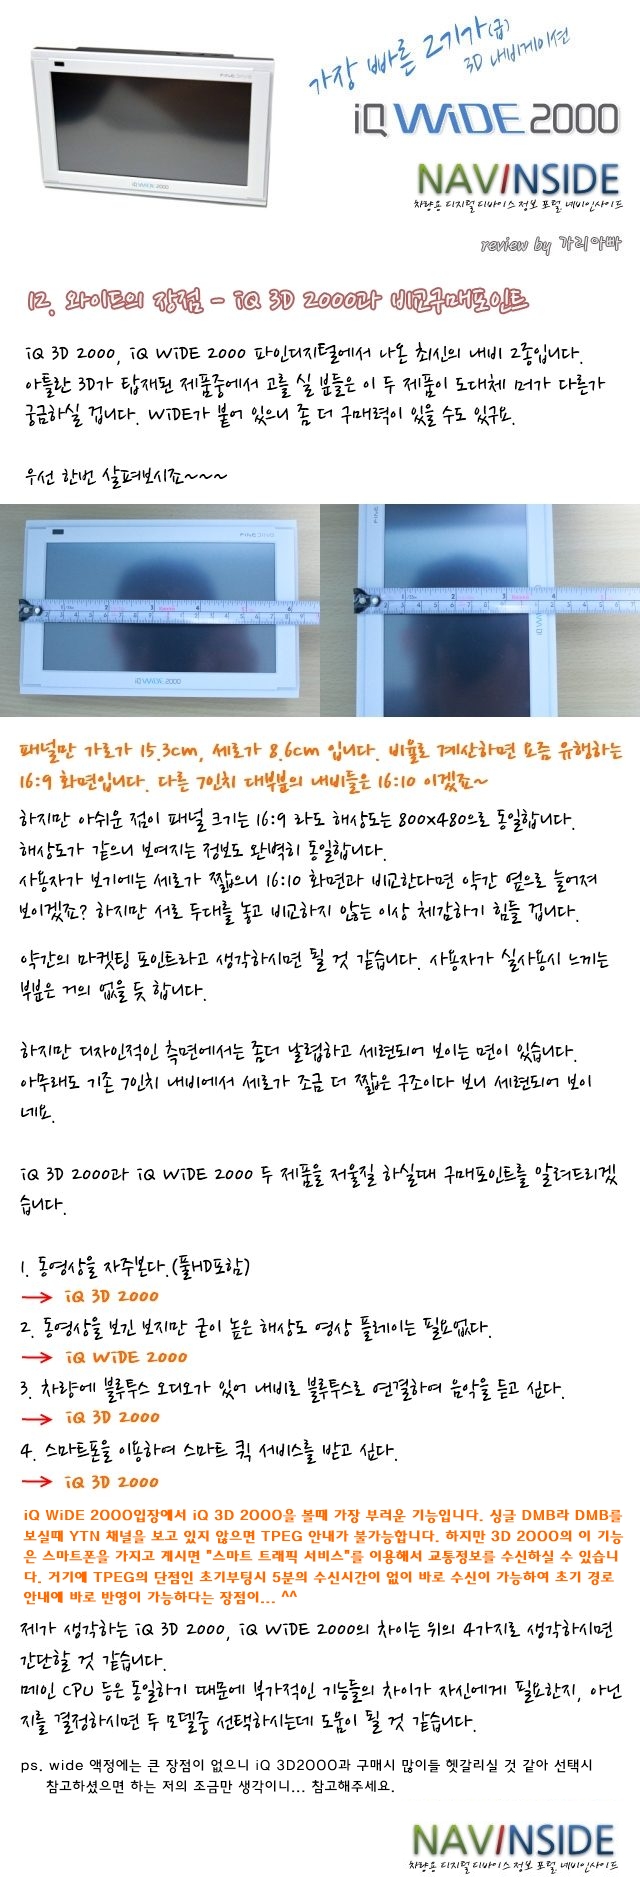 가장 빠른 2기가(급)
3D 내비게이션
iQ WiDE 2000
NAVINSIDE
차량용 디지털 디바이스 정보 포털, 네비인사이드
review by 가리아빠
FINEDRIVE
iQ WiDE 2000
12. 와이드의 장점 - iQ 3D 2000과 비교구매포인트
iQ 3D 2000, iQ WiDE 2000 파인디지털에서 나온 최신의 내비 2종입니다.
아틀란 3D가 탑재된 제품중에서 고를 실 분들은 이 두 제품이 도대체 머가 다른가
궁금하실 겁니다. WiDE가 붙어 있으니 좀 더 구매력이 있을 수도 있구요.
우선 한번 살펴보시죠~~~
FINEDRIVE
iQ WiDE 2000
패널만 가로가 15.3cm, 세로가 8.6cm 입니다. 비율로 계산하면 요즘 유행하는
16:9 화면입니다. 다른 7인치 대부분의 내비들은 16:10 이겠죠~
하지만 아쉬운 점이 패널 크기는 16:9 라도 해상도는 800x480으로 동일합니다.
해상도가 같으니 보여지는 정보도 완벽히 동일합니다.
사용자가 보기에는 세로가 짧으니 16:10 화면과 비교한다면 약간 옆으로 늘어져
보이겠죠? 하지만 서로 두대를 놓고 비교하지 않는 이상 체감하기 힘들 겁니다.
약간의 마켓팅 포인트라고 생각하시면 될 것 같습니다. 사용자가 실사용시 느끼는
부분은 거의 없을 듯 합니다.
하지만 디자인적인 측면에서는 좀더 날렵하고 세련되어 보이는 면이 있습니다.
아무래도 기존 7인치 내비에서 세로가 조금 더 짧은 구조이다 보니 세련되어 보이
네요.
iQ 3D 2000과 iQ WiDE 2000 두 제품을 저울질 하실때 구매포인트를 알려드리겠
습니다.
1. 동영상을 자주본다.(풀HD포함)
→ iQ 3D 2000
2. 동영상을 보긴 보지만 굳이 높은 해상도 영상 플레이는 필요없다.
→ iQ WiDE 2000
3. 차량에 블루투스 오디오가 있어 내비로 블루투스로 연결하여 음악을 듣고 싶다.
→ iQ 3D 2000
4. 스마트폰을 이용하여 스마트 퀵 서비스를 받고 싶다.
→ iQ 3D 2000
iQ WiDE 2000입장에서 iQ 3D 2000을 볼때 가장 부러운 기능입니다. 싱글 DMB라 DMB를
보실때 YTN 채널을 보고 있지 않으면 TPEG 안내가 불가능합니다. 하지만 3D 2000의 이 기능
은 스마트폰을 가지고 계시면 "스마트 트래픽 서비스"를 이용해서 교통정보를 수신하실 수 있습니
다. 거기에 TPEG의 단점인 초기부팅시 5분의 수신시간이 없이 바로 수신이 가능하여 초기 경로
안내에 바로 반영이 가능하다는 장점이... ^^
제가 생각하는 iQ 3D 2000, iQ WiDE 2000의 차이는 위의 4가지로 생각하시면
간단할 것 같습니다.
메인 CPU 등은 동일하기 때문에 부가적인 기능들의 차이가 자신에게 필요한지, 아닌
지를 결정하시면 두 모델중 선택하시는데 도움이 될 것 같습니다.
ps. wide 액정에는 큰 장점이 없으니 iQ 3D2000과 구매시 많이들 헷갈리실 것 같아 선택시
참고하셨으면 하는 저의 조금만 생각이니... 참고해주세요.
NAVINSIDE
차량용 디지털 디바이스 정보 포털, 네비인사이드